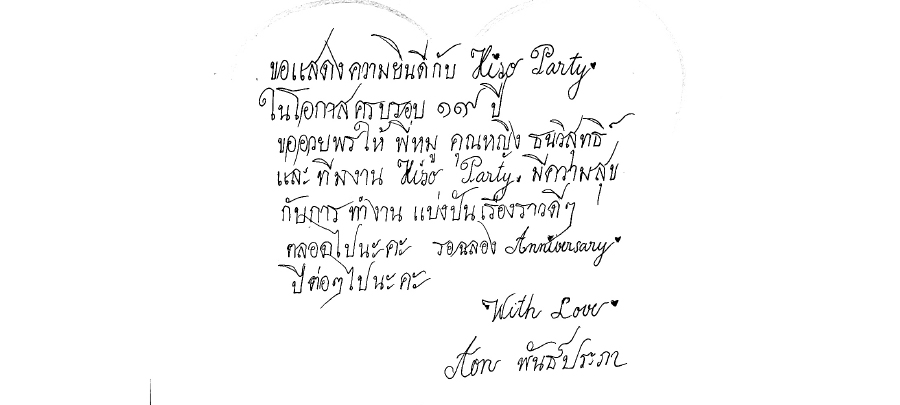 ขอแสดงความยินดีกับ Hiso Party
ในโอกาสครบรอบ ๑๗ ปี
ขออวยพรให้ พี่หมู คุณหญิง ธนวิสุทธิ์
และ ทีมงาน Hiso Party. มีความสุข
กับการ ทำงาน แบ่งปัน เรื่องราวดีๆ
ตลอดไปนะคะ รอฉลอง Anniversary
ปีต่อๆ ไปนะคะ
With Love
Aon พันธ์ประภา